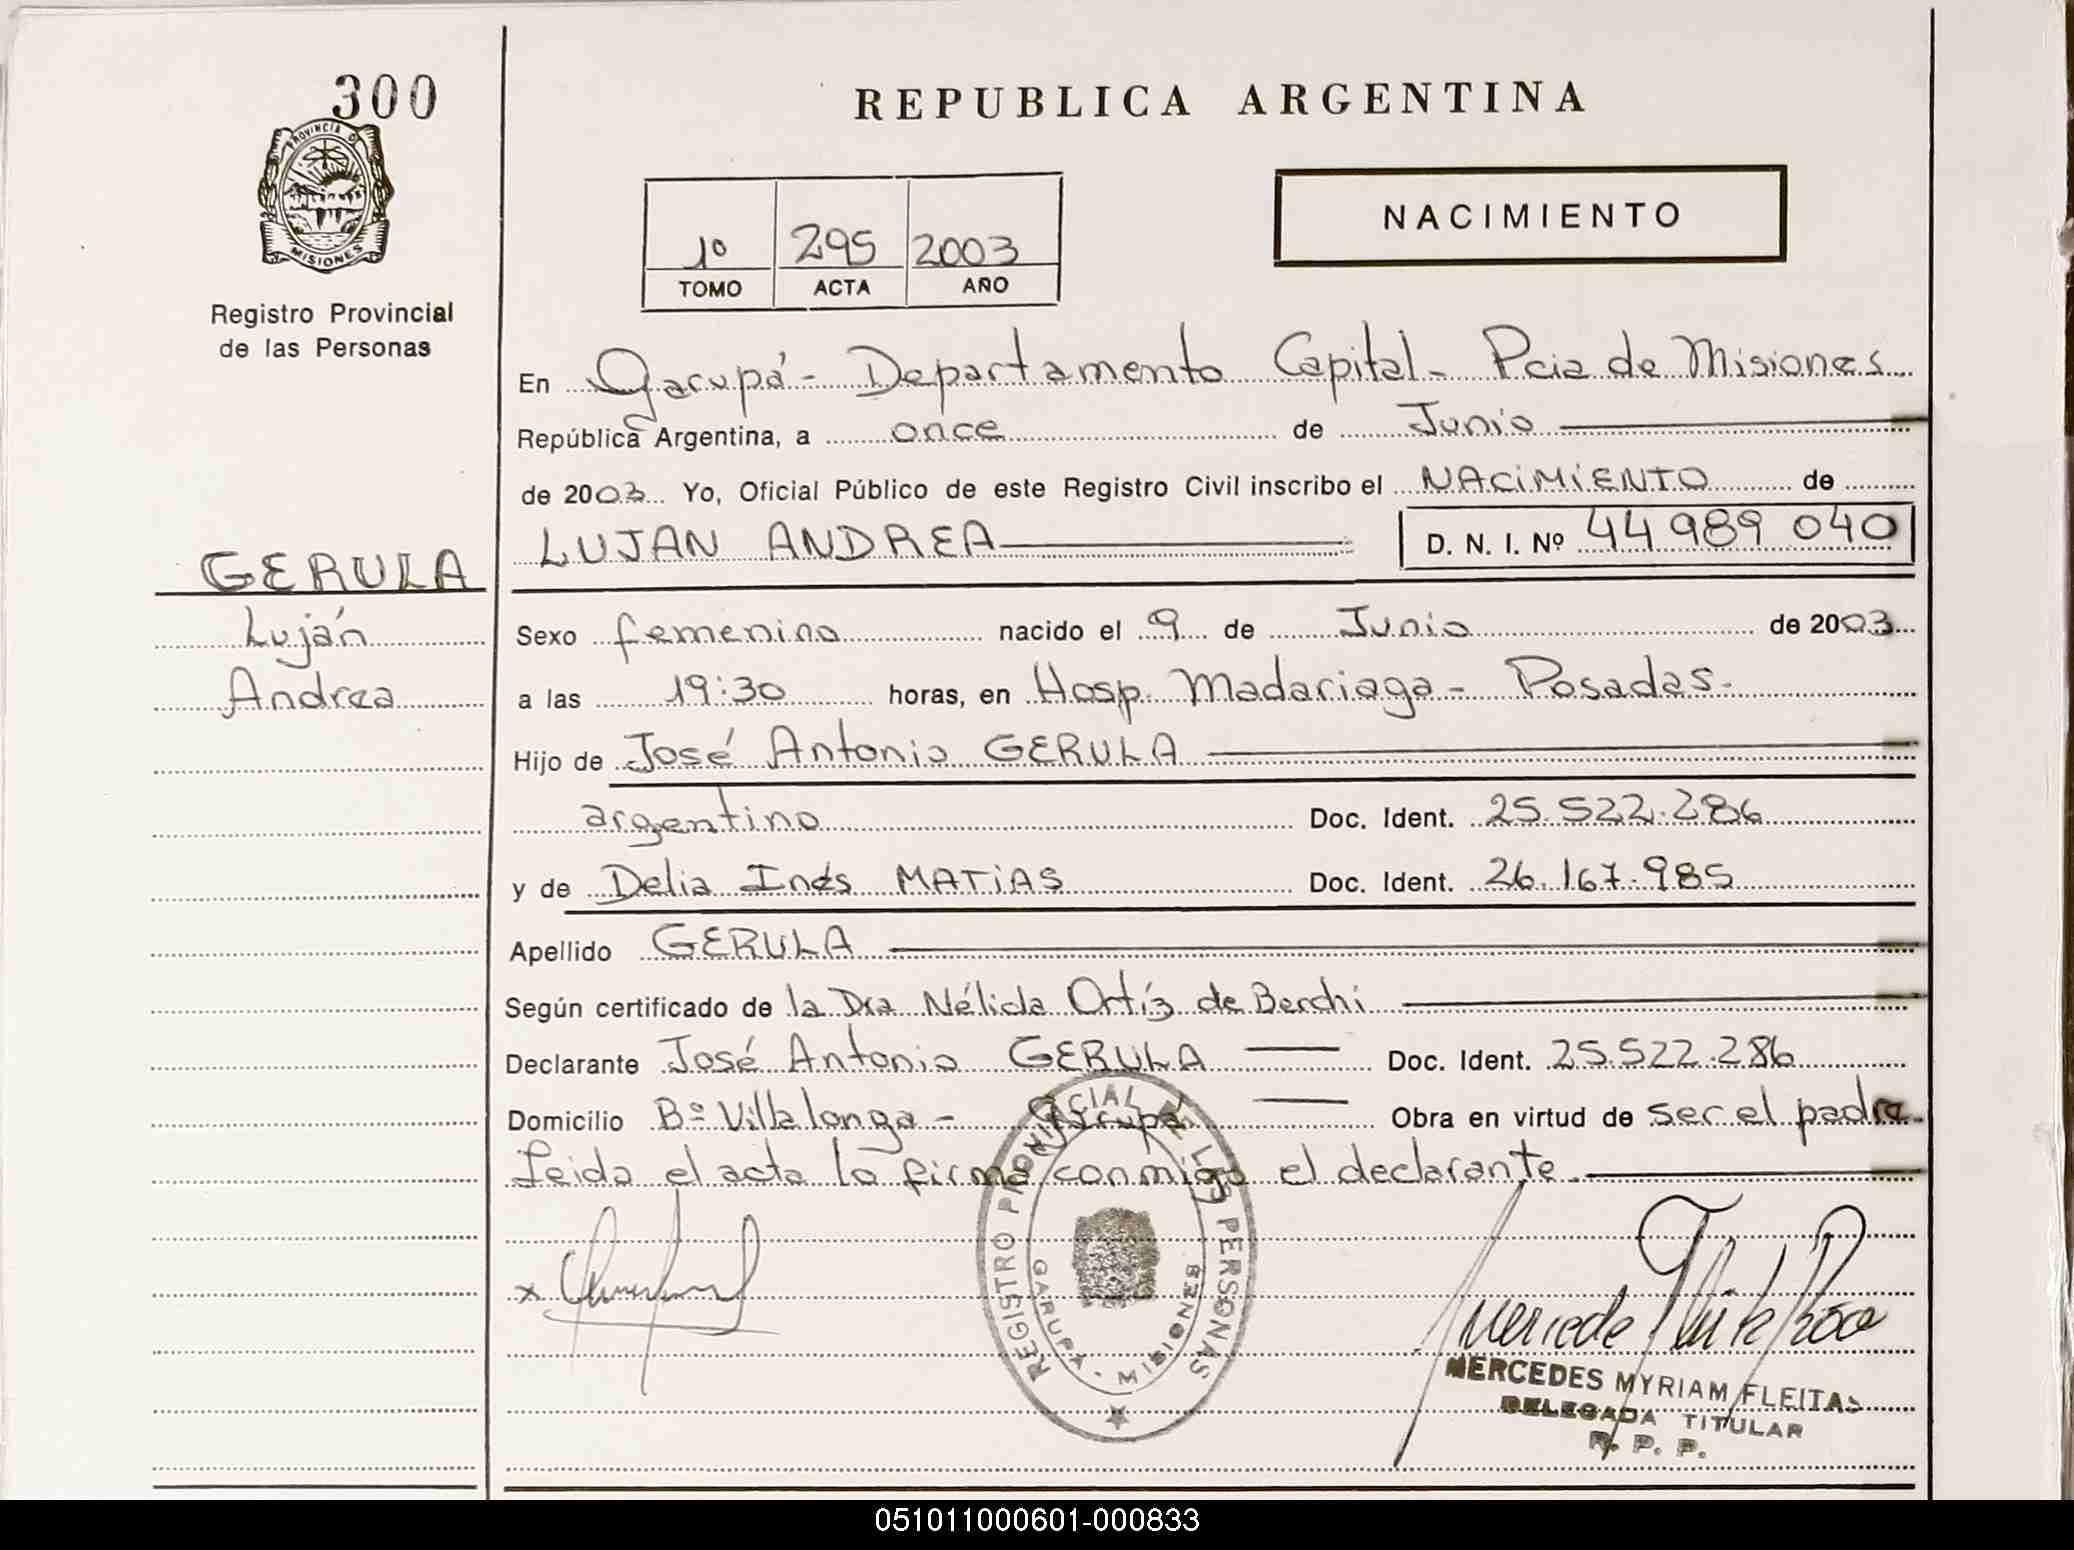 300
PROVINCIA D
MISIONES
Registro Provincial
de las Personas
GERULA
Luján
Andrea
REPUBLICA ARGENTINA
1º 295 2003
TOMO ACTA AÑO
NACIMIENTO
En Garupá - Departamento Capital - Pcia de Misiones
República Argentina, a once de Junio
de 2003 Yo, Oficial Público de este Registro Civil inscribo el NACIMIENTO de
LUJAN ANDREA D. N. I. Nº 44 989 040
Sexo femenino nacido el 9 de Junio de 2003
a las 19:30 horas, en Hosp. Madariaga - Posadas -
Hijo de José Antonio GERULA
argentino Doc. Ident. 25.522.286
y de Delia Inés MATIAS Doc. Ident. 26.167.985
Apellido GERULA
Según certificado de la Dra Nélida Ortíz de Berchi
Declarante José Antonio GERULA Doc. Ident. 25.522.286
Domicilio Bº Villalonga - Garupá Obra en virtud de ser el padre
Leida el acta la firma conmigo el declarante.
x
REGISTRO PROVINCIAL DE LAS PERSONAS
GARUPA - MISIONES
MERCEDES MYRIAM FLEITAS
DELEGADA TITULAR
R. P. P.
051011000601-000833